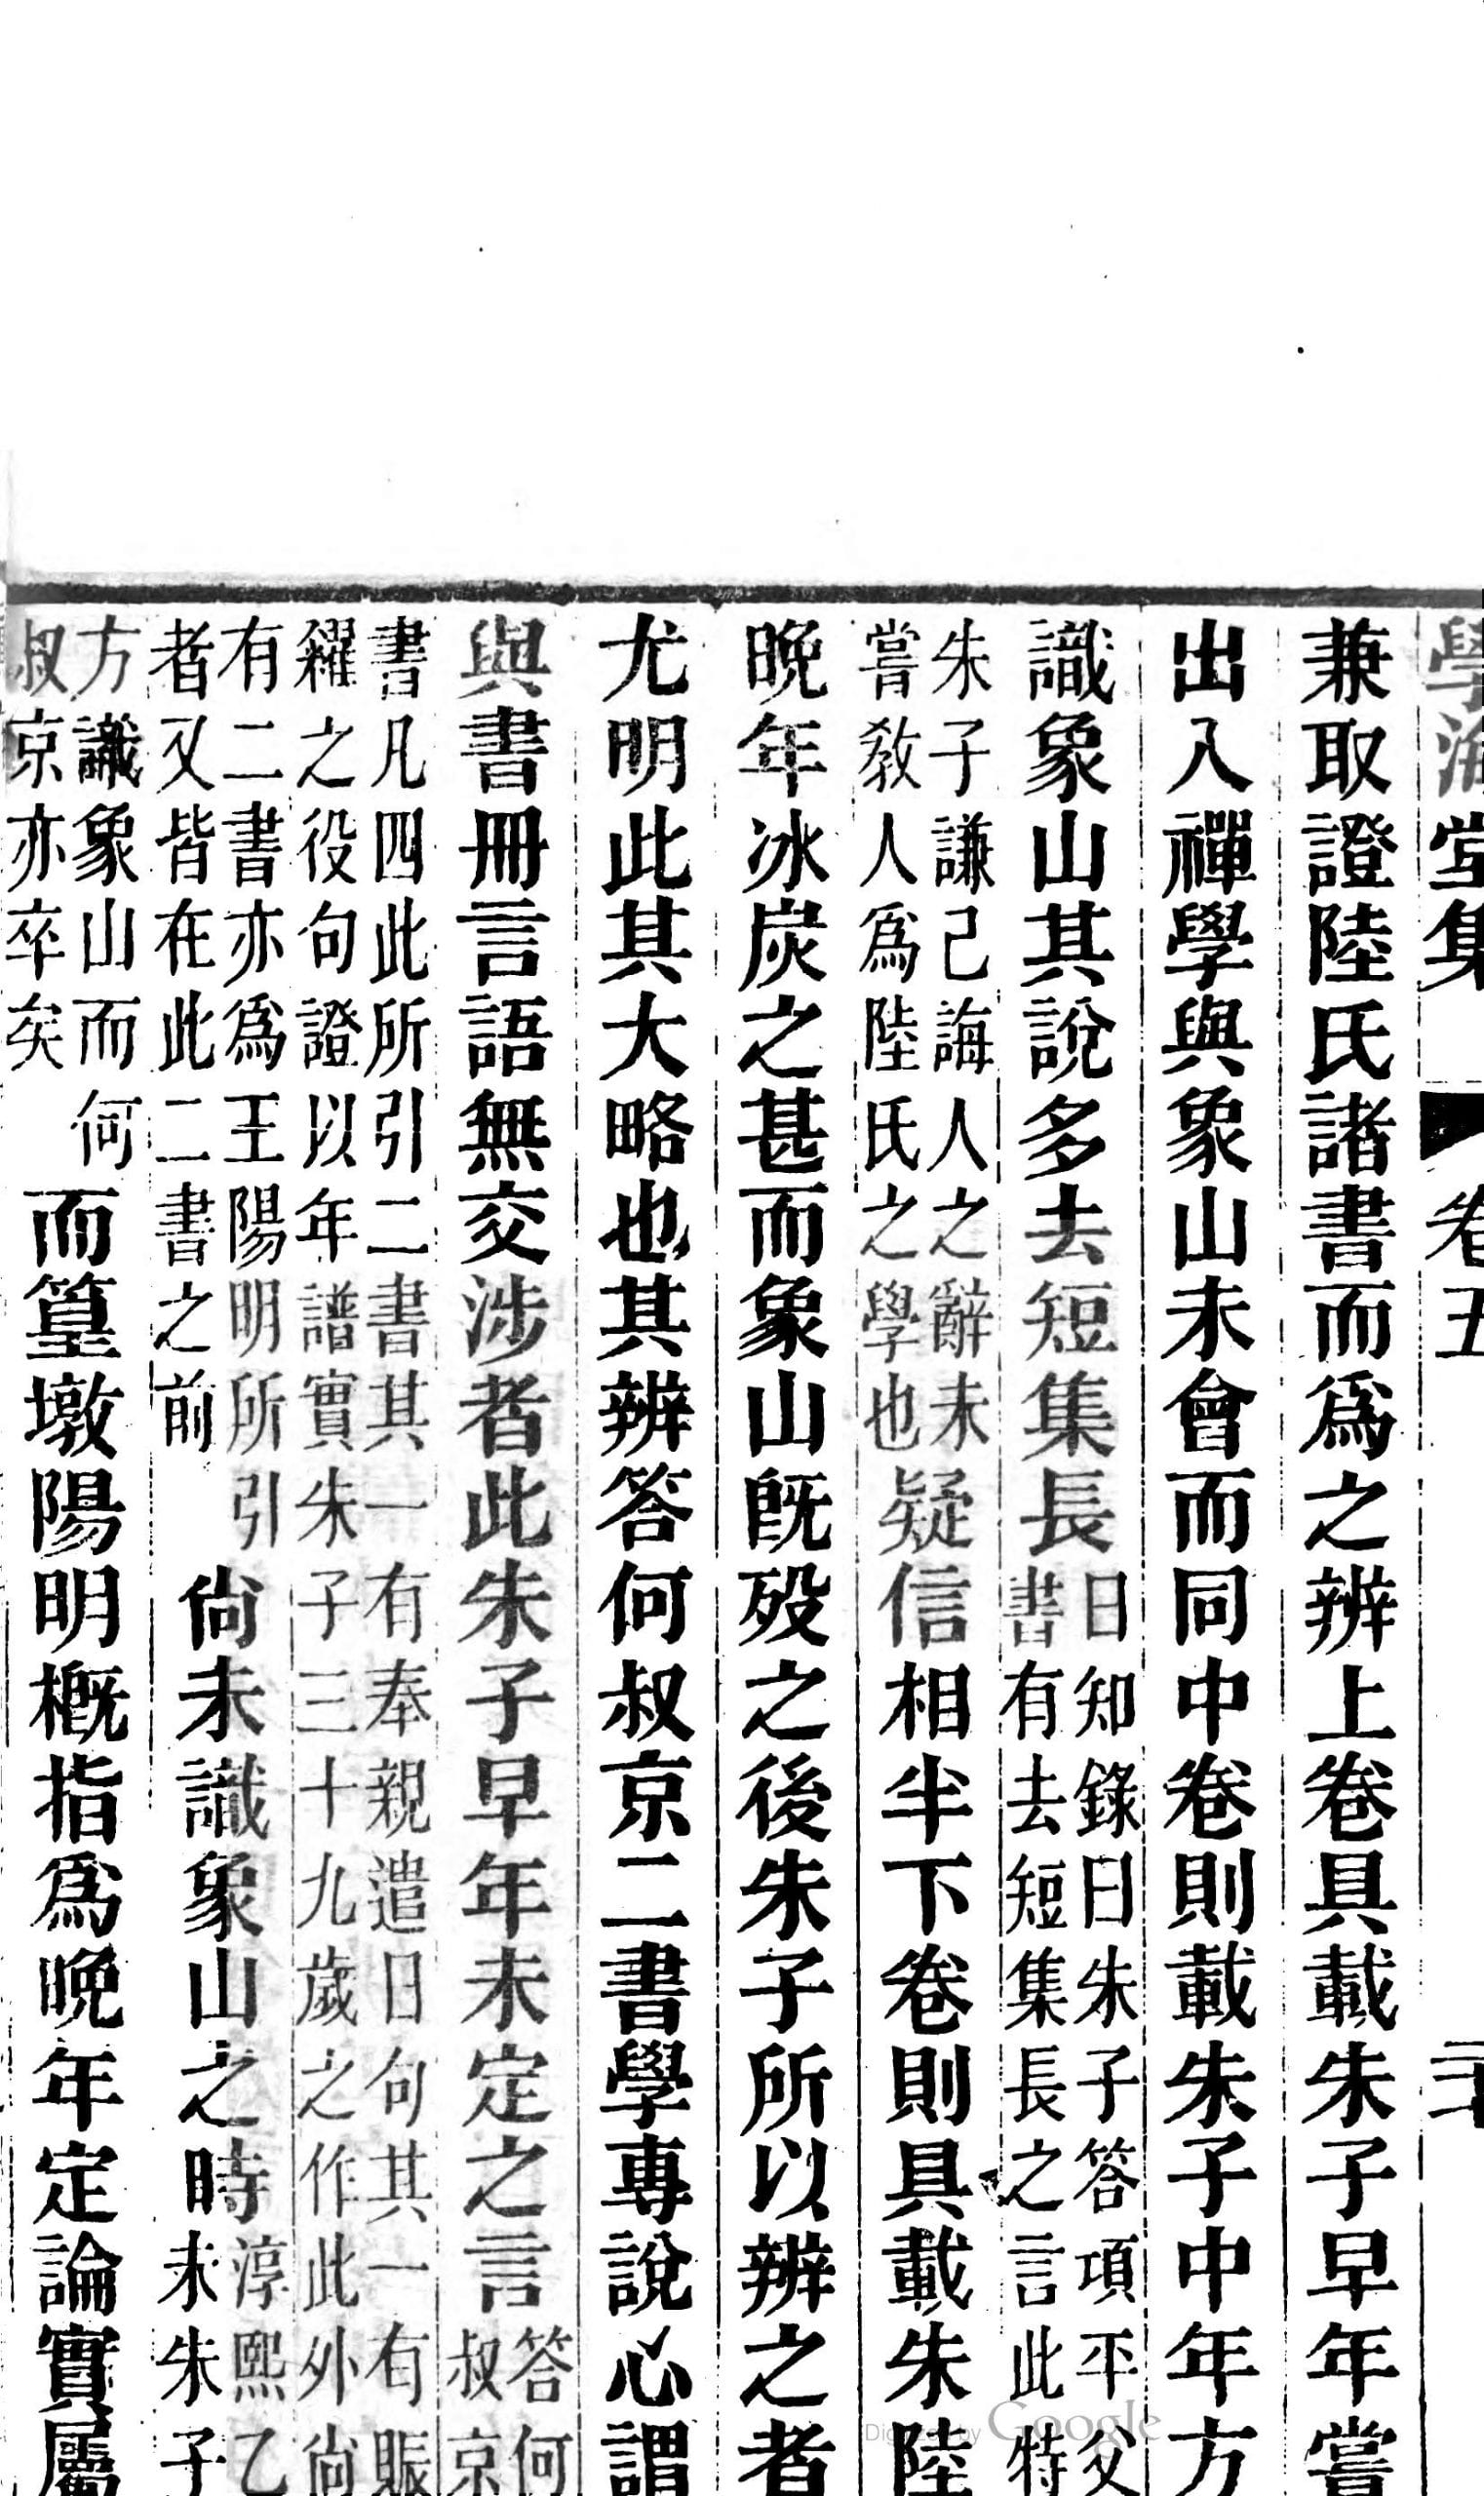 學海堂集 卷五 二十
兼取證陸氏諸書而爲之辨上卷具載朱子早年嘗
出入禪學與象山未會而同中卷則載朱子中年方
識象山其說多去短集長日知錄曰朱子答項平父
書有去短集長之言此特
朱子謙己誨人之辭未
嘗教人爲陸氏之學也疑信相半下卷則具載朱陸
晚年冰炭之甚而象山旣歿之後朱子所以辨之者
尤明此其大略也其辨答何叔京二書學專說心謂
與書冊言語無交涉者此朱子早年未定之言答何
叔京
書凡四此所引二書其一有奉親遣日句其一有賑
糴之役句證以年譜實朱子三十九歲之作此外尙
有二書亦爲王陽明所引
者又皆在此二書之前尙未識象山之時淳熙乙
未朱子
方識象山而何
叔京亦卒矣而篁墩陽明槪指爲晚年定論實屬
Digitized by Google